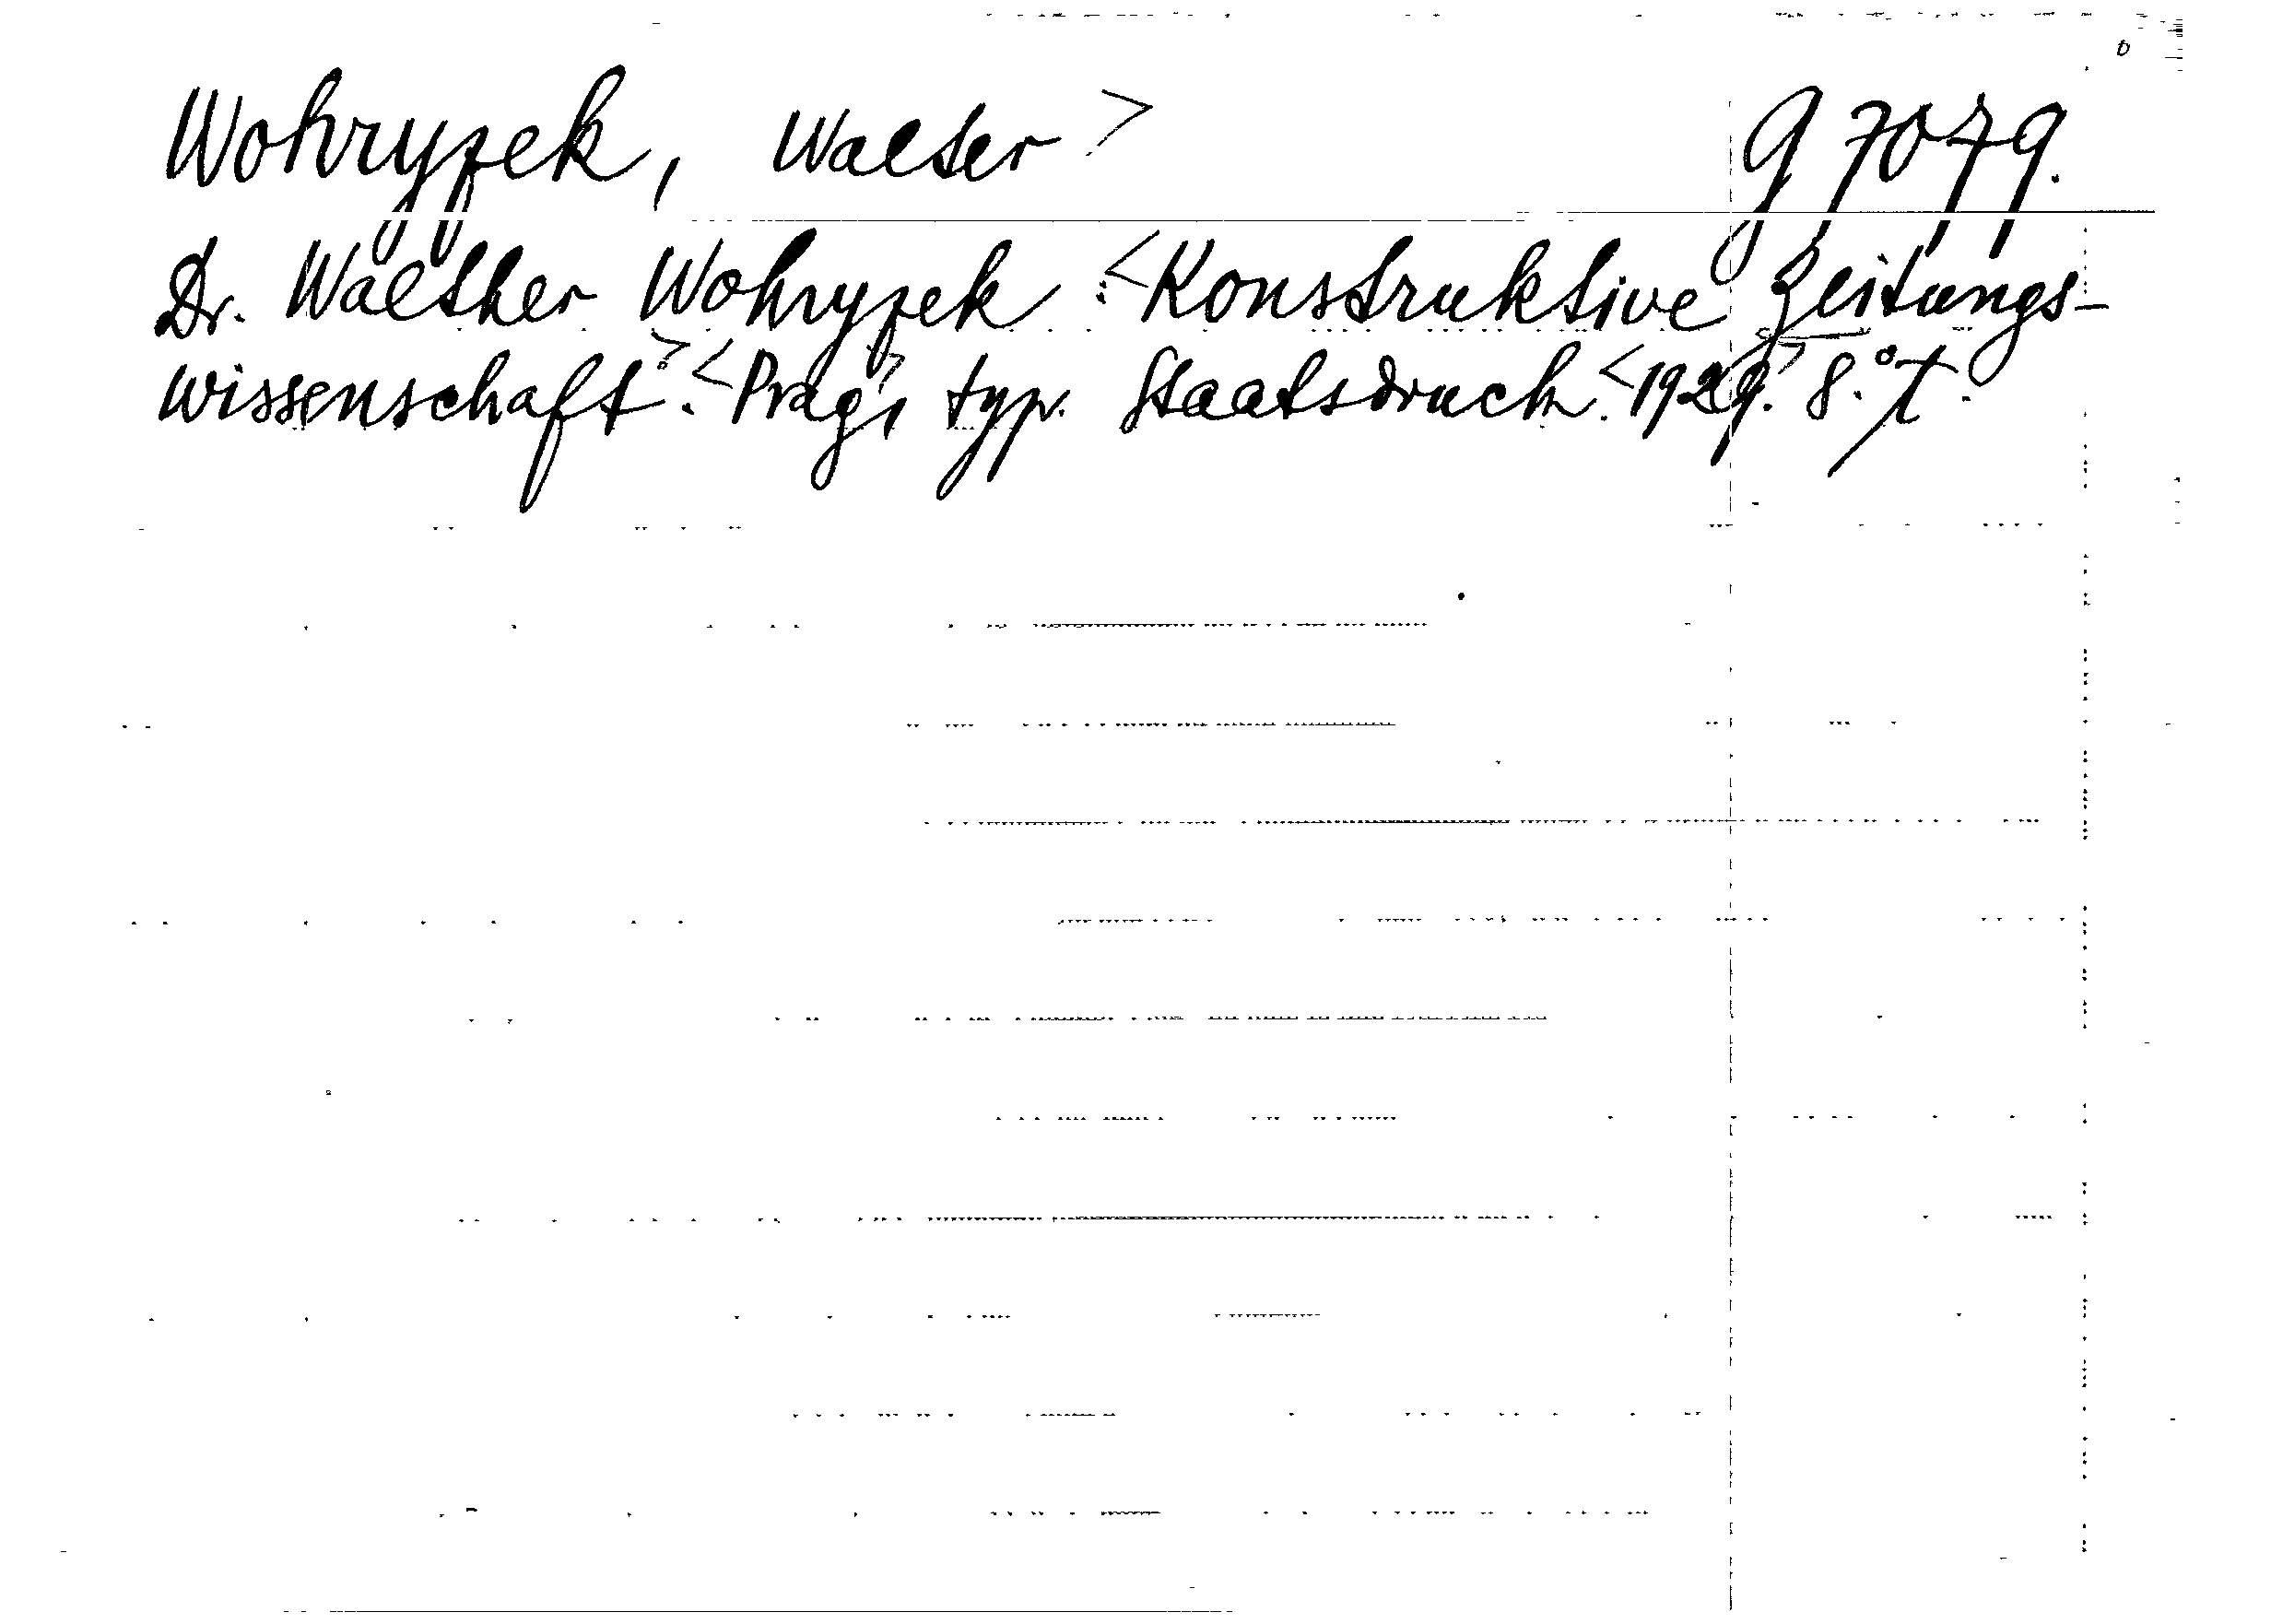 Wohryzek, Walter > g 7079.
Dr. Walther Wohryzek : <Konstruktive Zeitungs-
wissenschaft.> <Prag>, typ. Staatsdruck. <1929.> 8.° T.